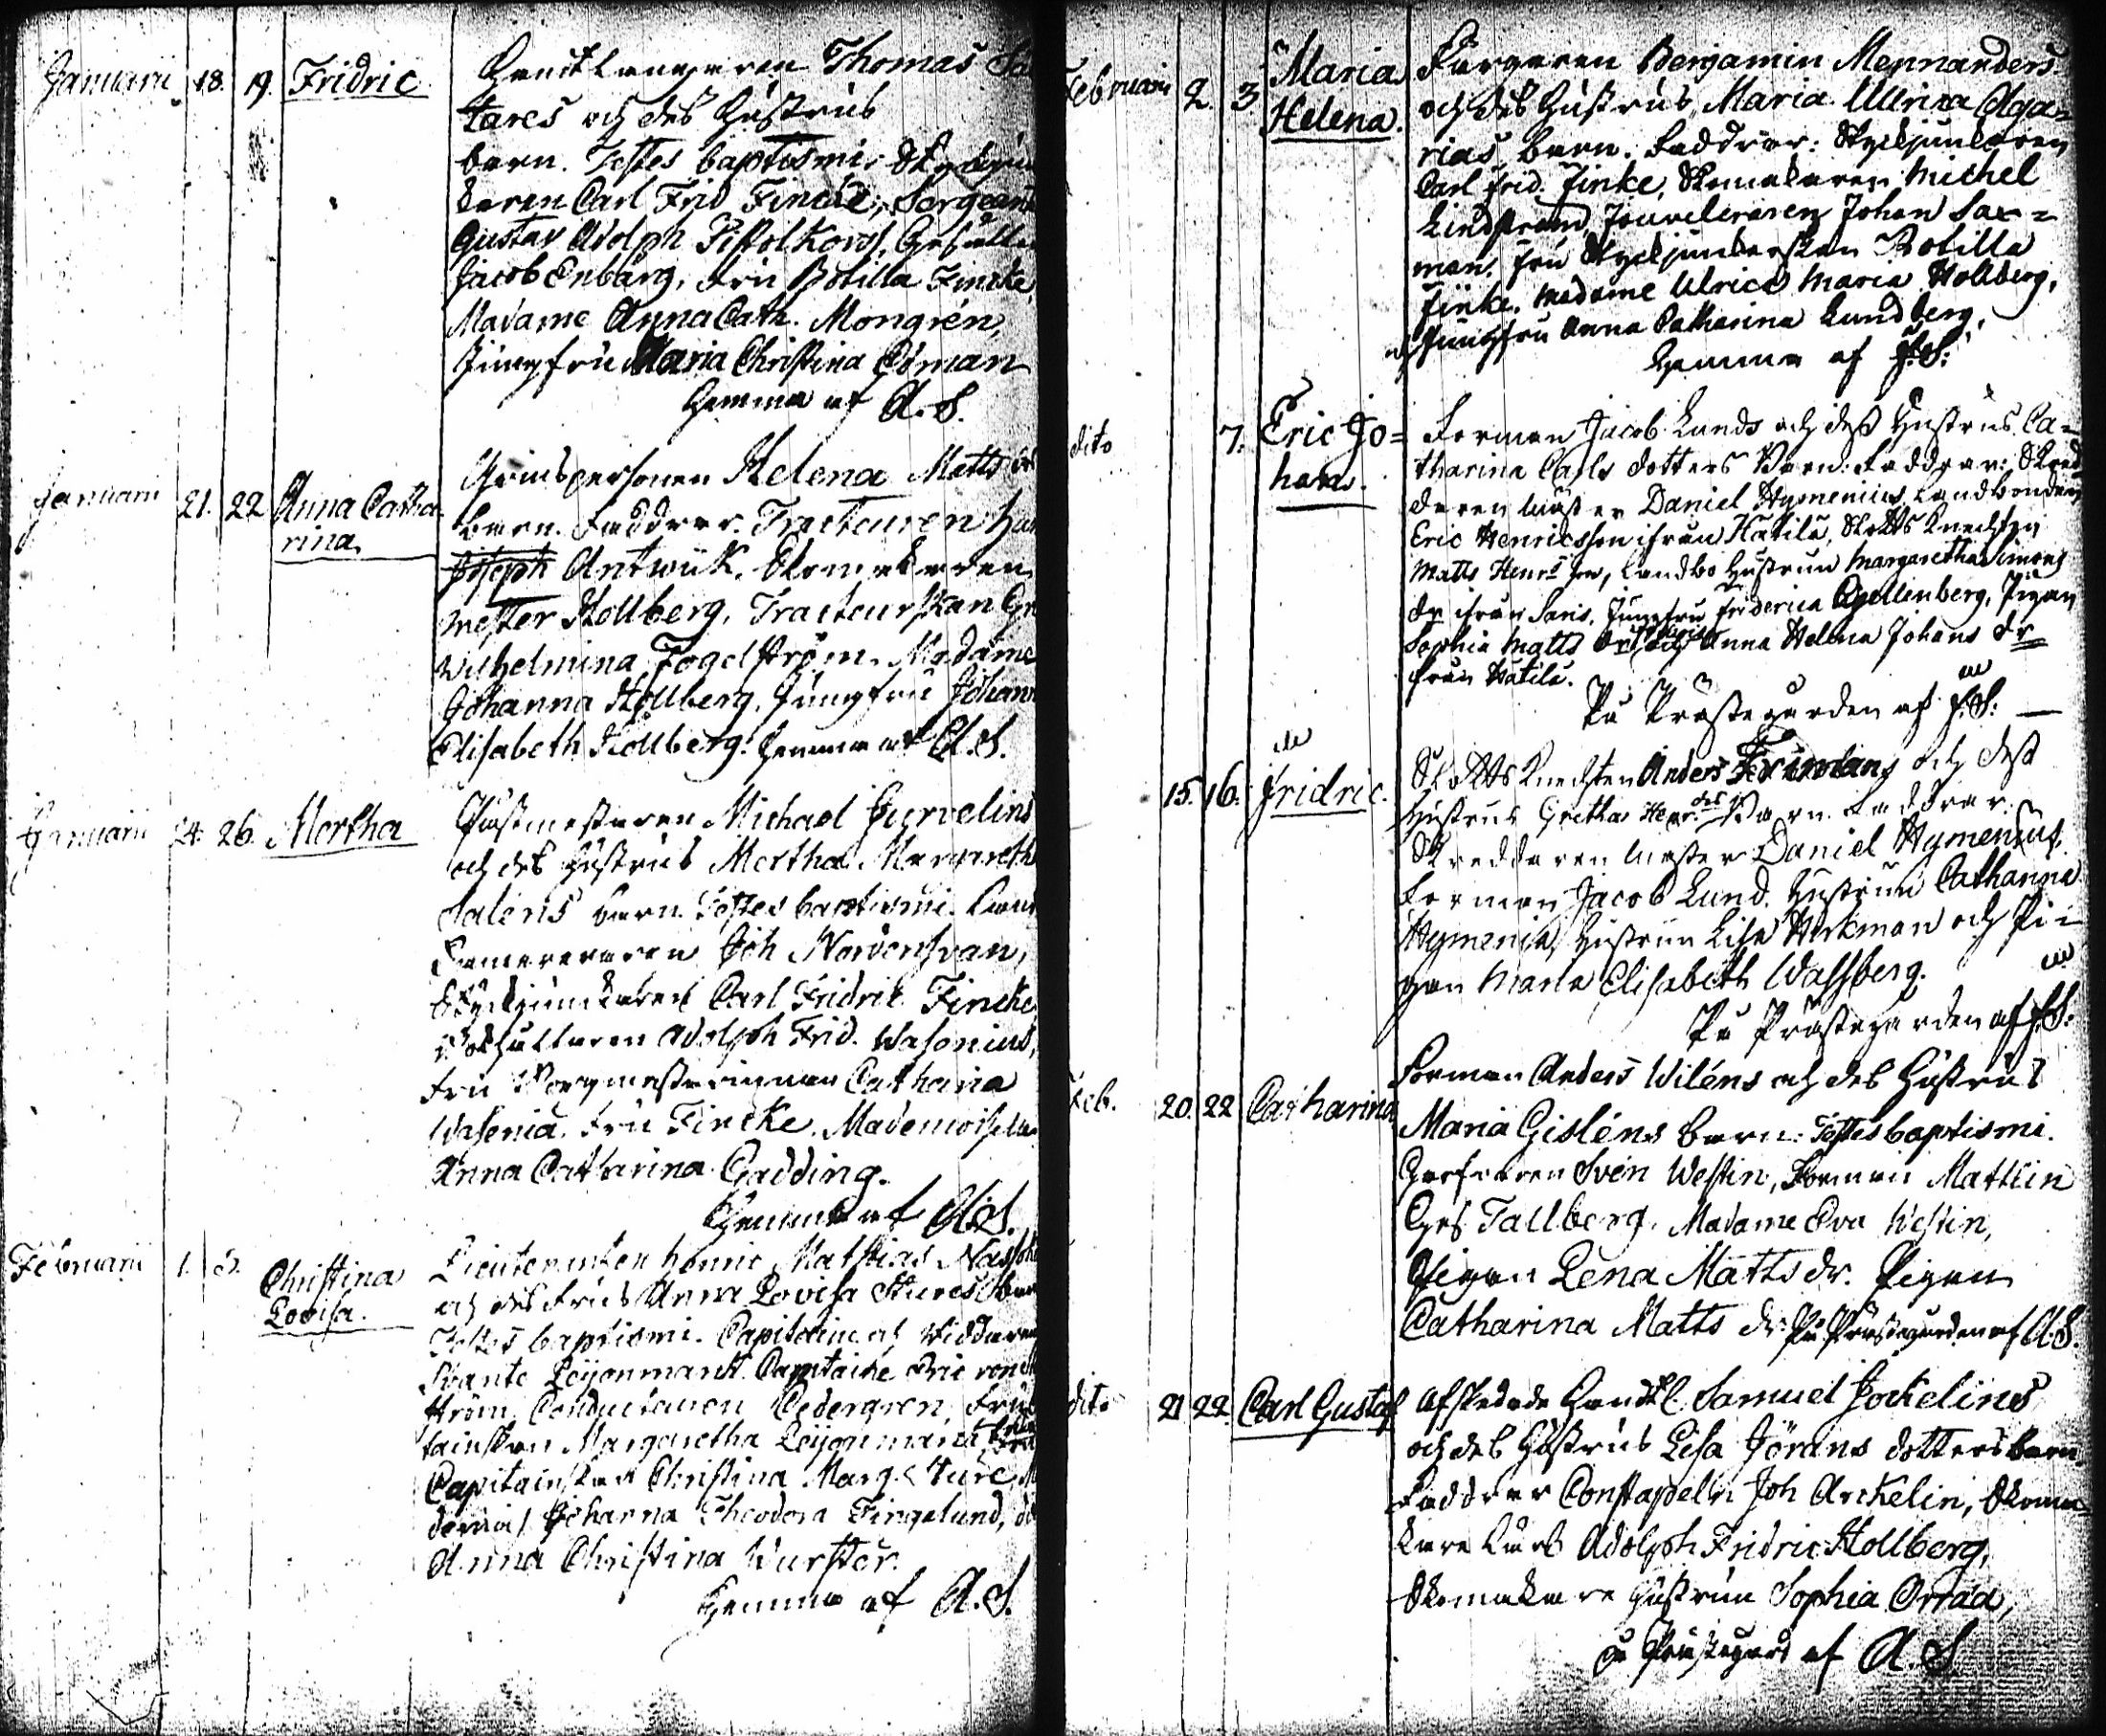 Januarii 18. 19. Fridric Handtlangaren Thomas
tares och des Hustrus
barn. Testes baptismi
Carl Frid Fincke, Sergeant
Gustav Adolph Pistolkors, Gesällen
Jacob Enbärg, Fru Botilla Fincke,
Madame Anna Cath. Mongrén,
Jungfru Maria Christina Öman
Hemma af A. S.
Januarii 21. 22 Anna Catha-
rina Qvinspersonen Helena Matts
barn. Faddrar. Tracteuren
Joseph Antwuk. Skomakaren
mester Hollberg, Tracteurskan
Wilhelmina Fogelström. Madame
Johanna Hollberg, Jungfru Johan
Elisabeth Hollberg. Hemma af A. S.
Januarii 24. 26. Mertha Michael Gurvelins
och des Hustrus Mertha Margareth
Saléns barn. Testes baptismi.
Joh Nordensvan,
Styckjunckaren Carl Fridric Fincke
Bokhållaren Adolph Frid. Wasenius,
Fru Borgmesterinnan Catharina
Wasenia. Fru Fincke. Mademoiselle
Anna Catharina Gadding.
Hemma af A. S.
Februarii 1. Christina
Lovisa. Lieutenanten Henric Mathias
och des Frus Anna Lovisa Stures barn
Testes baptismi. Capitaine och Riddaren
Svante Leijonmarck. Capitaine Eric von
ström, Conducteuren Cedergren, Fru
tainskan Margaretha Leijonmarck, Fru
Capitainskan Christina Marg. Sture,
Johanna Theodora Fingelund,
Anna Christina Wurster.
Hemma af A. S.
Februarii 2. 3. Maria
Helena. Färgaren Benjamin Mennanders
och des Hustrus Maria Ulrica Aga=
rias barn. Faddrar: Styckjunkaren
Carl Frid. Finke, Skomakaren Michel
Lindström, Jouveleraren Johan Sax=
man. Fru Styckjunkerskan Botilla
Finke. Madame Ulrica Maria Hollberg,
och Jungfru Anna Catharina Lundberg.
Hemma af J. S.
dito 7. Eric Jo=
han. Forman Jacob Lunds och dess Hustrus Ca=
tharina Carls dotters Barn. Faddrar: Skred
daren Mäster Daniel Hymenius, Landbonden
Eric Henricsson ifrån Hätilä, Slotts Knechten
Matts Henrs son, Landbo Hustrun Margaretha Simons
dr ifrån Saris, Jungfru Friderica Gyllenberg, Pigan
Sophia Matts dr och Anna Helena Johans dr
från Hätilä.
På Prästegården af J. S.
15. 16. Fridric. Slotts Knechten Anders Frimans och dess
Hustrus Gretha Henr. Barn. Faddrar
Skreddaren Mäster Daniel Hymenius,
Forman Jacob Lund. Hustrun Catharina
Hymenia, Hustrun Lisa Werkman och Pi=
gan Maria Elisabeth Wassberg.
På Prästegården af J. S.
Feb. 20. 22 Catharina Forman Anders Wiléns och des Hustrus
Maria Gisléns barn. Testes baptismi.
Sven Westin, Forman Mattiin
Tallberg. Madame Eva Westin,
Pigan Lena Matts dr. Pigan
Catharina Matts dr. På Prästegården af A. S.
dito 21 22 Carl Gustaf Afskedade Handtl. Samuel Jockelins
och des Hustrus Lisa Jörans dotters barn
Faddrar Constapeln Joh Arckelin, Skoma=
kare Adolph Fridric Hollberg,
Skomakare Hustrun Sophia Orrad,
På Prästegård af A. S.